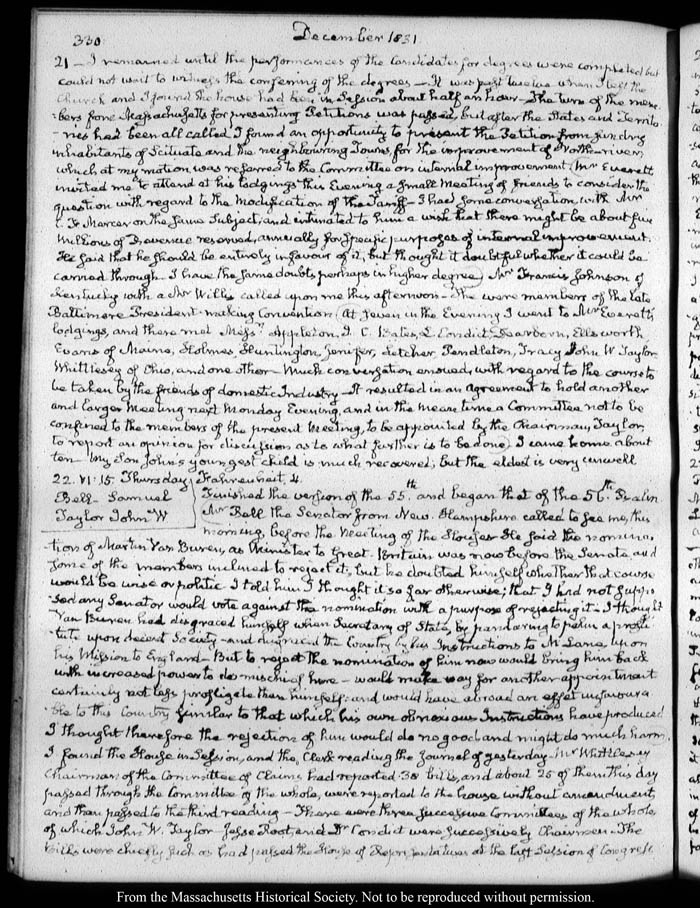 330
December 1831
21 — I remained until the performances of the Candidates for degrees were completed but
could not wait to witness the conferring of the degrees — It was past twelve when I left the
Church and I found the house had been in Session about half an hour — The turn of the mem-
-bers from Massachusetts for presenting Petitions was passed, but after the States and Territo-
ries had been all called I found an opportunity to present the Petition from sundry
inhabitants of Scituate and the neighbouring Towns, for the improvement of North-river,
which at my motion was referred to the Committee on internal improvement. Mr Everett
invited me to attend at his lodgings this Evening a small Meeting of friends to consider the
question with regard to the modification of the Tariff — I had some conversation with Mr
C. F. Mercer on the same Subject, and intimated to him a wish that there might be about five
Millions of Revenue reserved, annually for specific purposes of internal improvement.
He said that he should be entirely in favour of it, but thought it doubtful whether it could be
carried through — I have the same doubts, perhaps in higher degree. Mr Francis Johnson of
Kentucky with a Mr Willis called upon me this afternoon — The were members of the late
Baltimore President-making Convention. At seven in the Evening I went to Mr Everett's
lodgings, and there met Messrs Appleton, I. C. Bates, L Condict, Dearborn, Ellsworth
Evans of Maine, Holmes, Huntington, Jenifer, Letcher, Pendleton, Tracy John W Taylor
Whittlesey of Ohio, and one other — Much conversation ensued, with regard to the course to
be taken by the friends of domestic Industry — It resulted in an agreement to hold another
and larger Meeting next Monday Evening, and in the mean time a Committee not to be
confined to the members of the present Meeting, to be appointed by the Chairman Taylor
to report an opinion for discussion as to what further is to be done. I came home about
ten — My Son John's youngest child is much recovered, but the eldest is very unwell
22. VI:15. Thursday Fahrenheit, 4.
Bell Samuel
Taylor John W
Finished the version of the 55th. and began that of the 56th. Psalm.
Mr Bell the Senator from New-Hampshire called to see me, this
morning, before the Meeting of the House. He said the nomina-
tion of Martin Van Buren, as Minister to Great-Britain was now before the Senate and
some of the members inclined to reject it, but he doubted himself whether that course
would be wise or politic. I told him I thought it so far otherwise, that I had not suppo-
sed any Senator would vote against the nomination with a purpose of rejecting it — I thought
Van Buren had disgraced himself when Secretary of State, by pandering to palm a prosti-
tute upon decent Society — and disgraced the Country by his Instructions to McLane, upon
his Mission to England — But to reject the nomination of him now would bring him back
with increased power to do mischief here — would make way for another appointment
certainly not less profligate than himself: and would have abroad an effect unfavoura-
ble to this Country similar to that which his own obnoxious Instructions have produced
I thought therefore the rejection of him would do no good and might do much harm.
I found the House in Session, and the Clerk reading the Journal of yesterday — Mr Whittlesey
Chairman of the Committee of Claims had reported 30 bills, and about 25 of them this day
passed through the Committee of the whole, were reported to the house without amendment,
and then passed to the third reading — There were three successive Committees of the whole,
of which John W. Taylor — Jesse Root, and Dr Condict were successively Chairmen — The
bills were chiefly such as had passed the House of Representatives at the last Session of Congress
From the Massachusetts Historical Society. Not to be reproduced without permission.